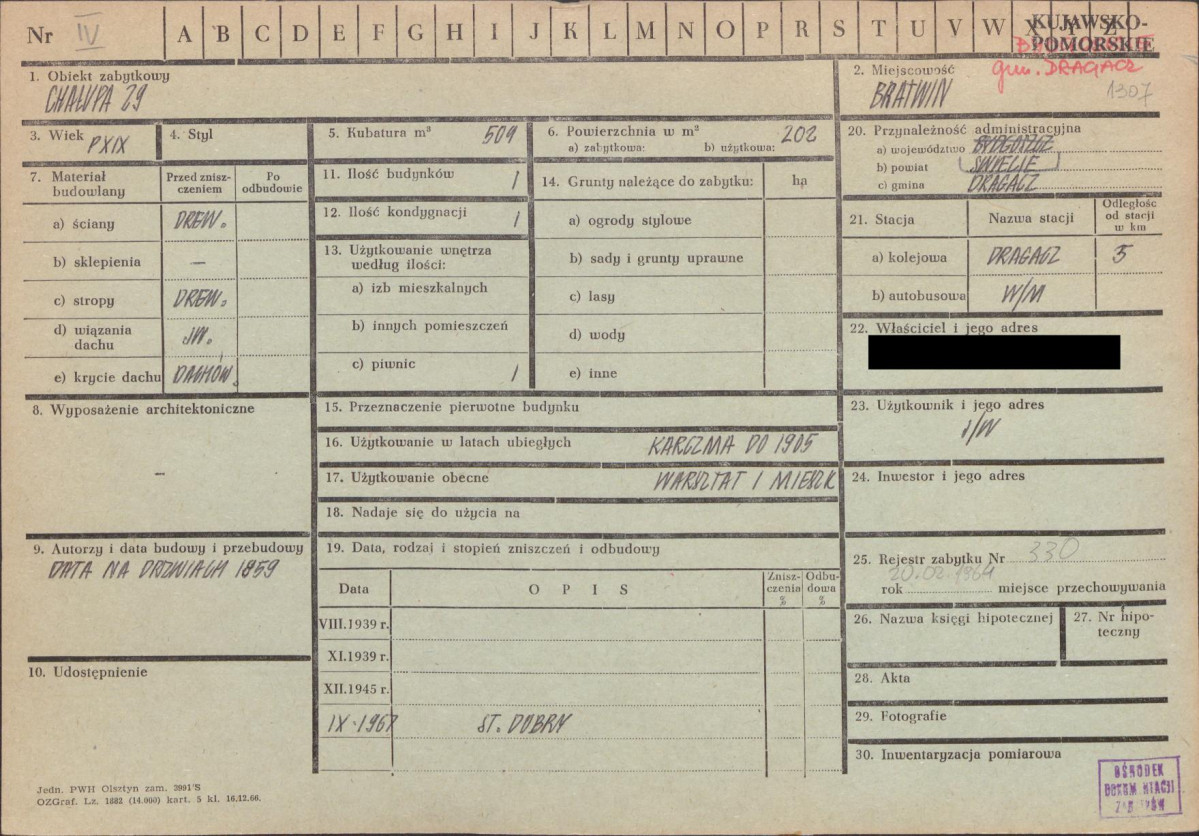 Nr IV A B C D E F G H I J K L M N O P R S T U V W X Y Z KUJAWSKO-
POMORSKIE
gm. DRAGACZ
1. Obiekt zabytkowy
CHAŁUPA 29
2. Miejscowość
BRATWIN 1307
3. Wiek PXIX
4. Styl
5. Kubatura m³ 509
6. Powierzchnia w m² 202
a) zabytkowa: b) użytkowa:
7. Materiał budowlany
Przed znisz-
czeniem
Po
odbudowie
a) ściany DREW.
b) sklepienia —
c) stropy DREW.
d) wiązania
dachu JW.
e) krycie dachu DACHÓW.
8. Wyposażenie architektoniczne
—
9. Autorzy i data budowy i przebudowy
DATA NA DRZWIACH 1859
10. Udostępnienie
11. Ilość budynków 1
12. Ilość kondygnacji 1
13. Użytkowanie wnętrza
według ilości:
a) izb mieszkalnych
b) innych pomieszczeń
c) piwnic 1
14. Grunty należące do zabytku: ha
a) ogrody stylowe
b) sady i grunty uprawne
c) lasy
d) wody
e) inne
15. Przeznaczenie pierwotne budynku
16. Użytkowanie w latach ubiegłych KARCZMA DO 1905
17. Użytkowanie obecne WARSZTAT I MIESZK
18. Nadaje się do użycia na
19. Data, rodzaj i stopień zniszczeń i odbudowy
Data OPIS
Znisz-
czenia
%
Odbu-
dowa
%
VIII.1939 r.
XI.1939 r.
XII.1945 r.
IX-1967 ST. DOBRY
20. Przynależność administracyjna
a) województwo BYDGOSZCZ
b) powiat ŚWIECIE
c) gmina DRAGACZ
21. Stacja Nazwa stacji
Odległość
od stacji
w km
a) kolejowa DRAGACZ 5
b) autobusowa W/M
22. Właściciel i jego adres
23. Użytkownik i jego adres
J/W
24. Inwestor i jego adres
25. Rejestr zabytku Nr 330
20.02.1964
rok miejsce przechowywania
26. Nazwa księgi hipotecznej
27. Nr hipo-
teczny
28. Akta
29. Fotografie
30. Inwentaryzacja pomiarowa
Jedn. PWH Olsztyn zam. 2991 S
OZGraf. Lz. 1882 (14.000) kart. 5 kl. 16.12.66.
OŚRODEK